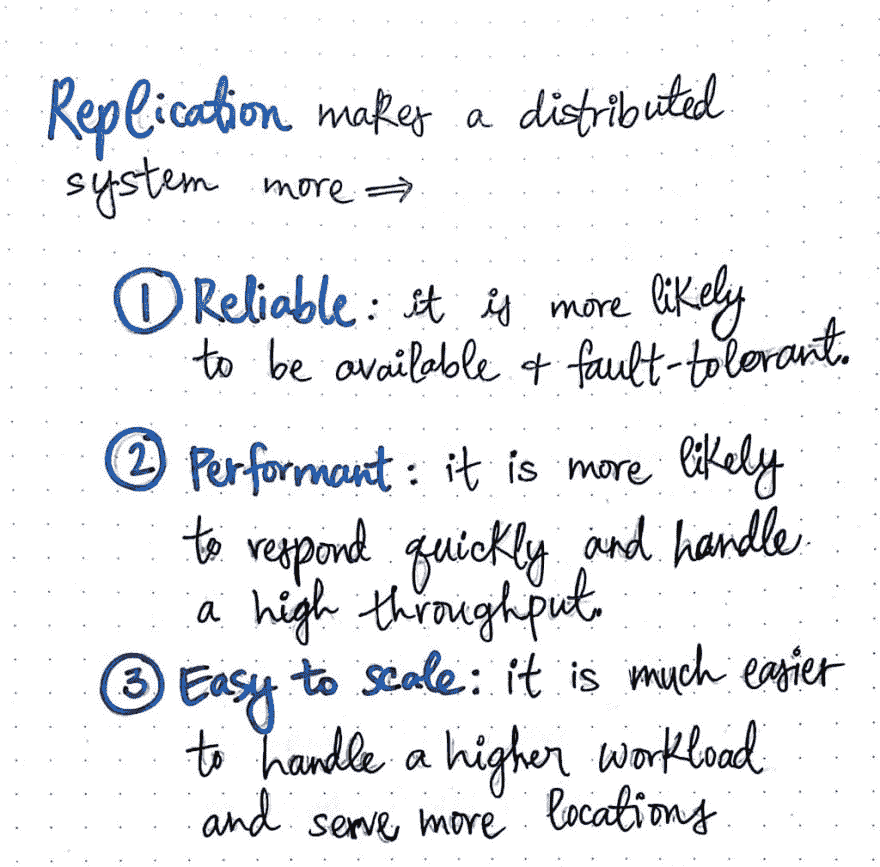 Replication makes a distributed
system more ⇒
① Reliable: it is more likely
to be available & fault-tolerant.
② Performant: it is more likely
to respond quickly and handle
a high throughput.
③ Easy to scale: it is much easier
to handle a higher workload
and serve more locations